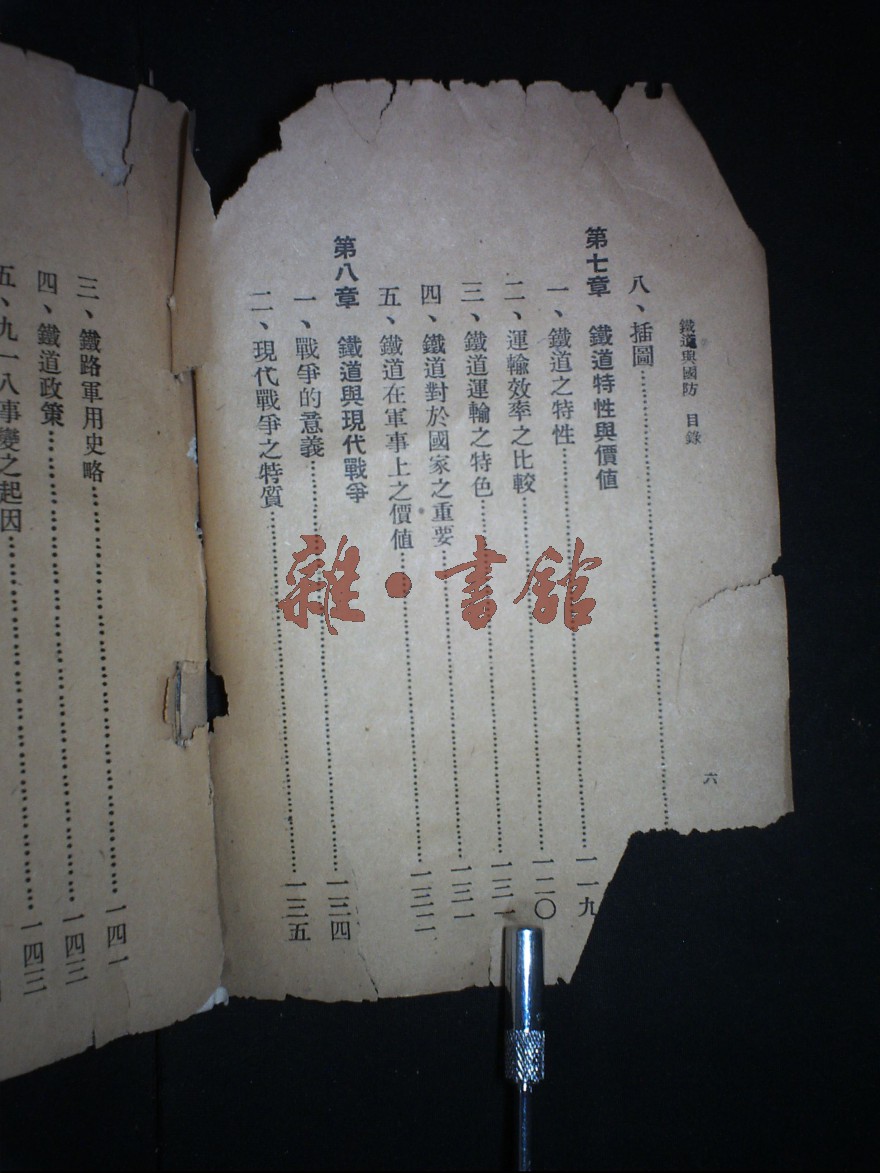 鐵道與國防 目錄
六
八、插圖……
第七章 鐵道特性與價值
一、鐵道之特性……一一九
二、運輸效率之比較……一二〇
三、鐵道運輸之特色……一三一
四、鐵道對於國家之重要……一三一
五、鐵道在軍事上之價値……一三二
第八章 鐵道與現代戰爭
一、戰爭的意義……一三四
二、現代戰爭之特質……一三五
三、鐵路軍用史略……一四一
四、鐵道政策……一四三
五、九一八事變之起因……一四三
雜·書館